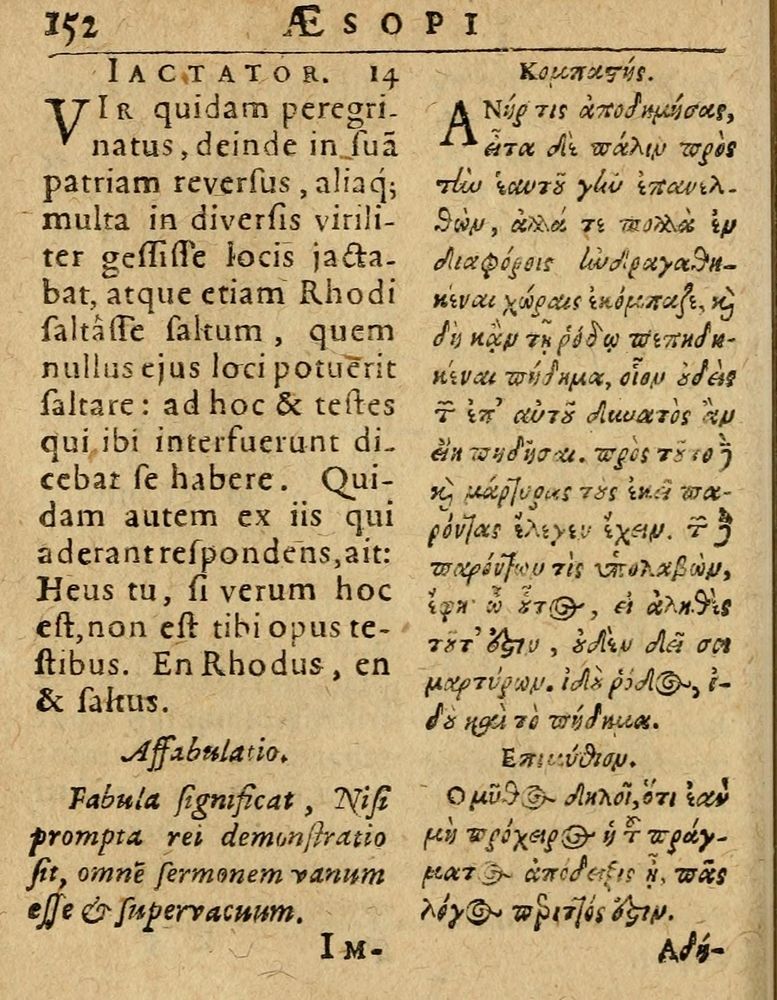 152 ÆSOPI
IACTATOR. 14
VIR quidam peregri-
natus, deinde in suā
patriam reversus, aliaq;
multa in diversis virili-
ter gessisse locis jacta-
bat, atque etiam Rhodi
saltâsse saltum, quem
nullus ejus loci potuerit
saltare: ad hoc & testes
qui ibi interfuerunt di-
cebat se habere. Qui-
dam autem ex iis qui
aderant respondens, ait:
Heus tu, si verum hoc
est, non est tibi opus te-
stibus. En Rhodus, en
& saltus.
Affabulatio.
Fabula significat, Nisi
prompta rei demonstratio
sit, omnē sermonem vanum
esse & supervacuum.
IM-
Κομπαςής.
ΑΝήρ τις ἀποδημήσας,
εἶτα δὲ πάλιν πρὸς
τὴν ἑαυτοῦ γῆν ἐπανελ-
θὼν, ἄλλά τε πολλὰ ἐν
διαφόροις ἠνδραγαθη-
κέναι χώραις ἐκόμπαζε, καὶ
δὴ κἀν τῇ ῥόδῳ πεπηδη-
κέναι πήδημα, οἷον οὐδεὶς
τῶν ἐπ' αὐτοῦ δυνατὸς ἂν
εἴη πηδῆσαι. πρὸς τοῦτο δὲ
καὶ μάρτυρας τοὺς ἐκεῖ πα-
ρόντας ἔλεγεν ἔχειν. τῶν δὲ
παρόντων τὶς ὑπολαβὼν,
ἔφη ὦ οὗτος, εἰ ἀληθὲς
τοῦτ' ἐστιν, οὐδὲν δεῖ σοι
μαρτύρων. ἰδοὺ ῥόδος, ἰ-
δοὺ καὶ τὸ πήδημα.
Επιμύθιον.
Ο μῦθος δηλοῖ, ὅτι ἐὰν
μὴ πρόχειρος ἡ τοῦ πράγ-
ματος ἀπόδειξις ᾖ, πᾶς
λόγος περιττός ἐστιν.
Αδύ-